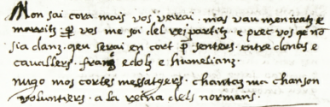 Non sai cora mais vos veirai. mas van men iratz e
marritz per vos me soi del rei partitz. e prec vos qe no
sia danz. qen serai en cort prezenters. entre domnas e
cavalliers. francs e dols e humelians.
nugo mos cortes messatgers. chantaz ma chanson
voluntiers. a la reina dels normans.